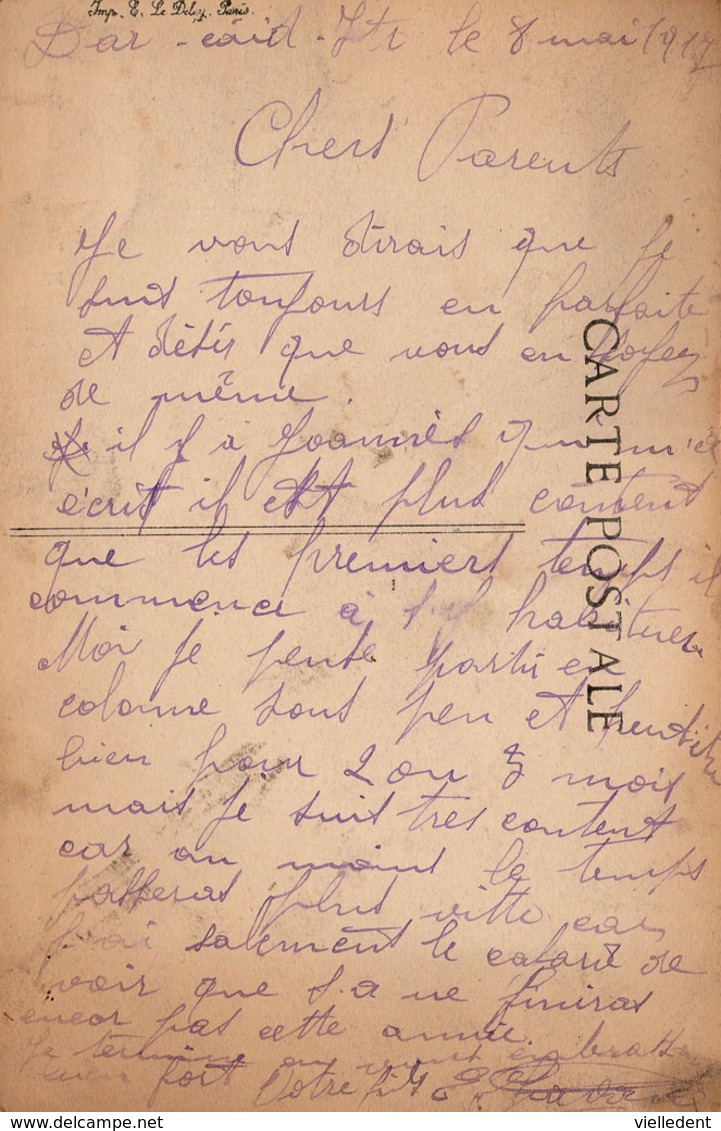 Imp. E. Le Deley, Paris.
Dar-caïd-Ito le 8 mai 1917
Chers Parents
Je vous dirais que je
suis toujours en parfaite
et désir que vous en soyez
de même.
il y a Joannès qui m'a
écrit il est plus content
que les premiers temps il
commence à s'y habituer
Moi je pense partir en
colonne sous peu et peut être
bien pour 2 ou 3 mois
mais je suis tres content
car au moins le temps
passeras plus vitte car
j'ai salement le cafard de
voir que sa ne finiras
encor pas cette année.
Je termine en vous embrassant
bien fort Votre fils E
CARTE POSTALE
vielledent